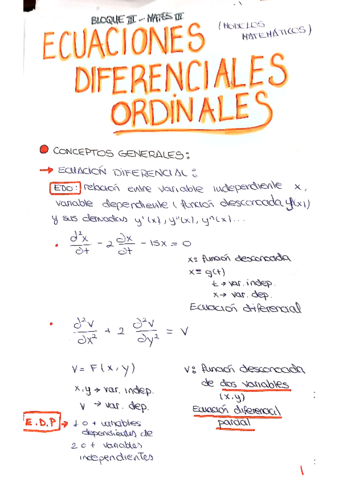 BLOQUE III - MATES III
(MODELOS MATEMÁTICOS)
ECUACIONES
DIFERENCIALES
ORDINALES
CONCEPTOS GENERALES:
→ ECUACIÓN DIFERENCIAL:
EDO: relación entre variable independiente x,
variable dependiente (función desconocida y(x))
y sus derivadas y'(x), y''(x), yⁿ(x)...
• ∂²x/∂t - 2 ∂x/∂t - 15x = 0
x: función desconocida
x = g(t)
t → var. indep.
x → var. dep.
Ecuación diferencial
• ∂²v/∂x² + 2 ∂²v/∂y² = v
v = F(x,y)
x,y → var. indep.
v → var. dep.
v: función desconocida
de dos variables
(x,y)
Ecuación diferencial
parcial
E.D.P → 1 o + variables
dependientes de
2 o + variables
independientes
1